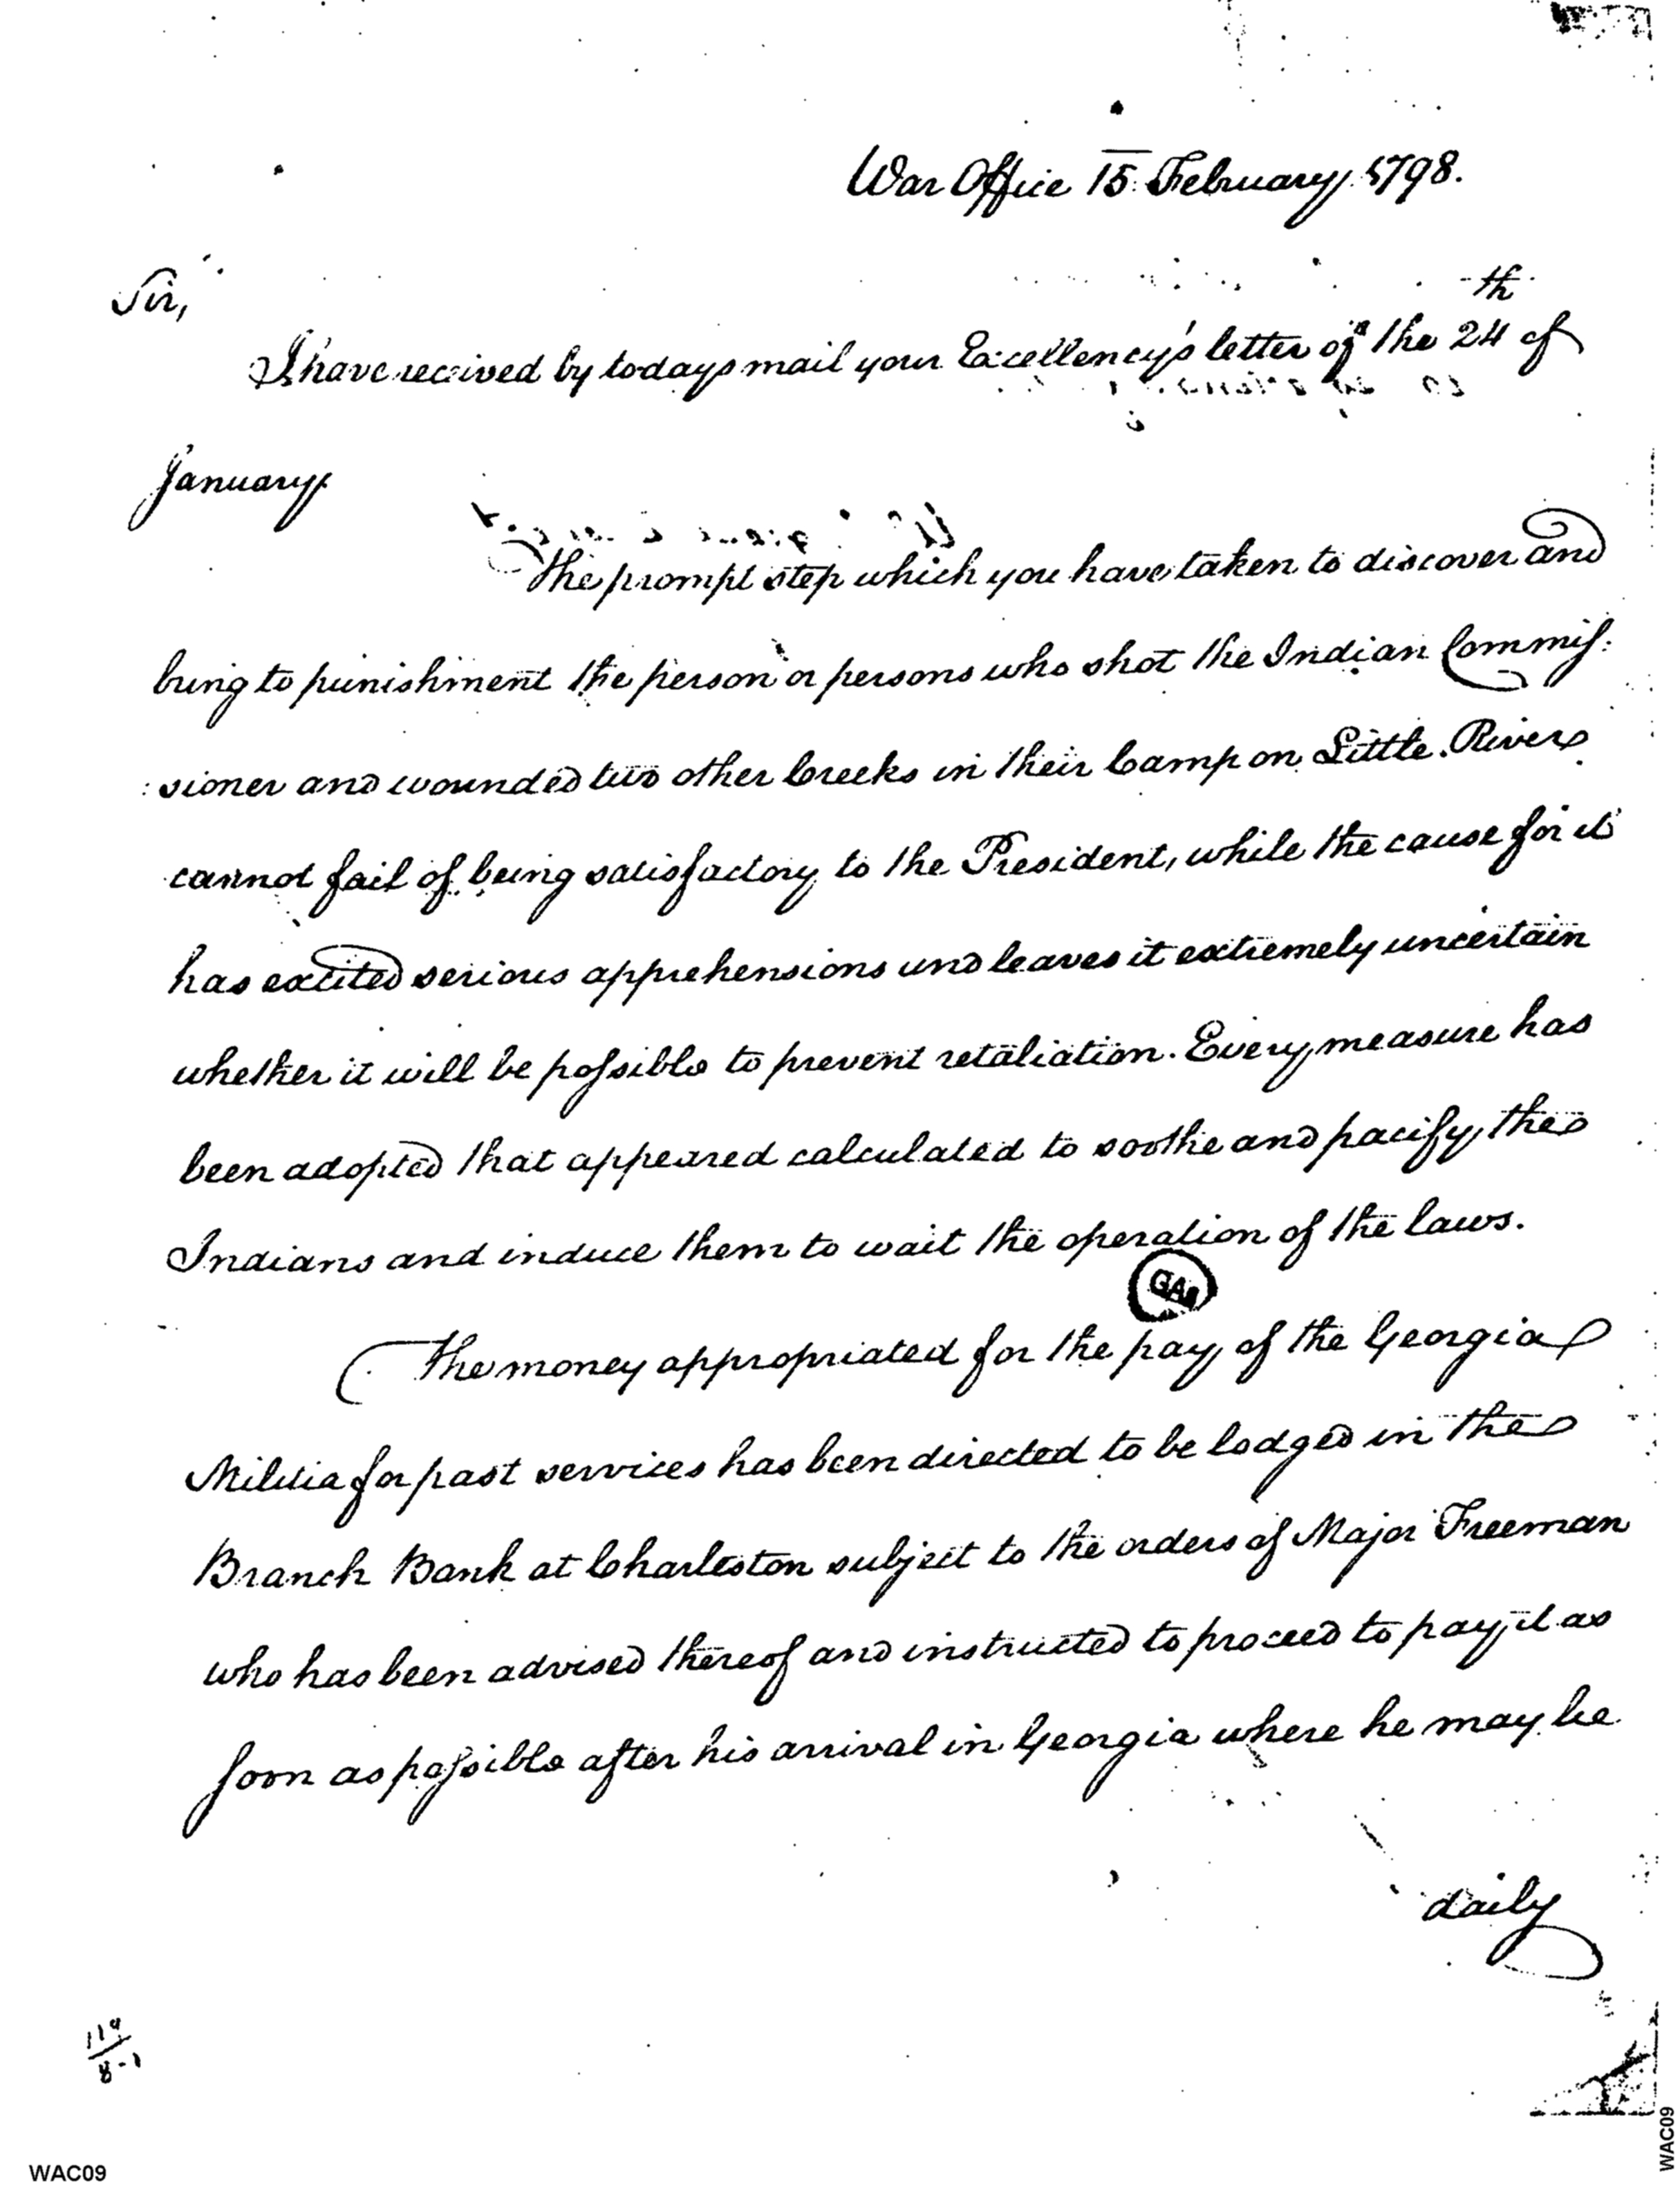 War Office 15 February 1798.
Sir,
th
I have received by todays mail your Excellency's letter of the 24 of
January
The prompt step which you have taken to discover and
bring to punishment the person or persons who shot the Indian Commiſ:
:sioner and wounded two other Creeks in their Camp on Little River
cannot fail of being satisfactory to the President, while the cause for it
has excited serious apprehensions and leaves it extremely uncertain
whether it will be poſsible to prevent retaliation. Every measure has
been adopted that appeared calculated to soothe and pacify the
Indians and induce them to wait the operation of the laws.
GA
The money appropriated for the pay of the Georgia
Militia for past services has been directed to be lodged in the
Branch Bank at Charleston subject to the orders of Major Freeman
who has been advised thereof and instructed to proceed to pay it as
soon as poſsible after his arrival in Georgia where he may be
daily
WAC09
WAC09